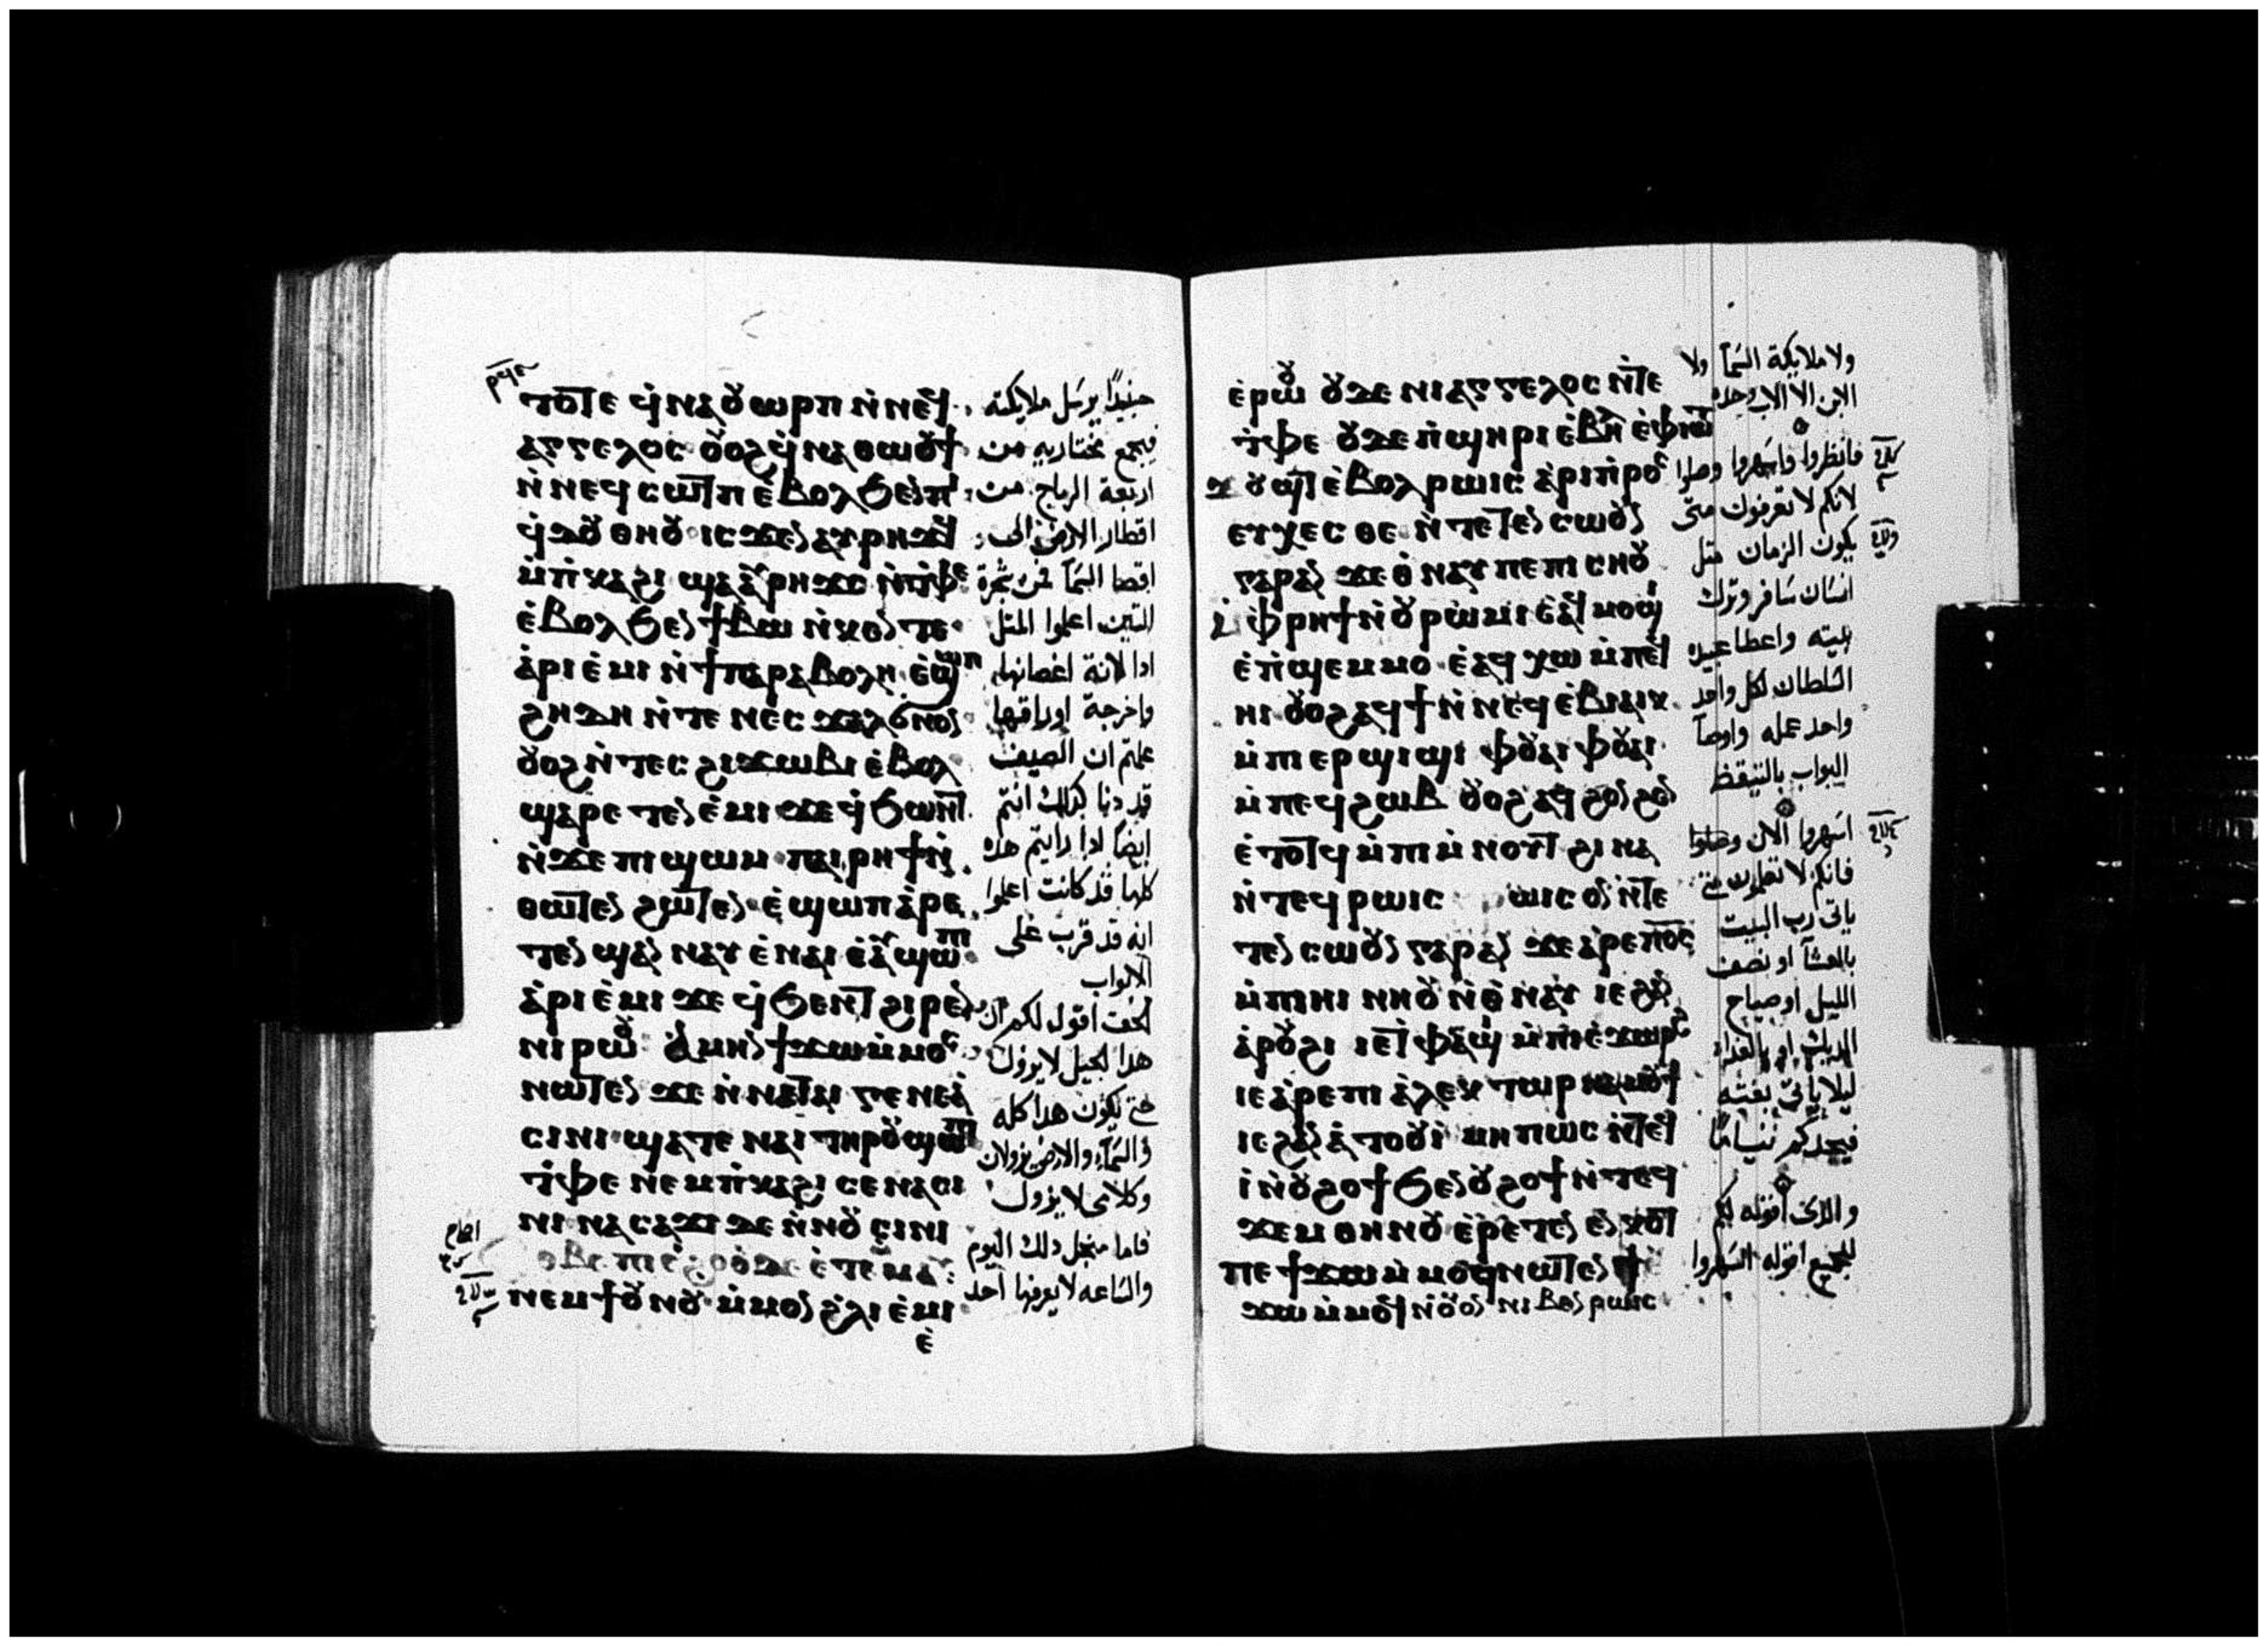 ⲧⲟⲧⲉ ϥ̀ⲛⲁⲟⲩⲱⲣⲡ ⲛ̀ⲛⲉϥ
ⲁⲅⲅⲉⲗⲟⲥ ⲟⲩⲟϩ ϥ̀ⲛⲁⲑⲱⲟⲩϯ
ⲛ̀ⲛⲉϥⲥⲱⲧⲡ ⲉ̀ⲃⲟⲗϧⲉⲛⲡⲓ
ϥ̀ⲇⲟⲩ ⲑⲏⲟⲩ ⲓⲥϫⲉⲛ ⲁⲩⲣⲏϫϥ
ⲙ̀ⲡ̀ⲕⲁϩⲓ ϣⲁ ⲁⲩⲣⲏϫⲥ ⲛ̀ⲧ̀ⲫⲉ
ⲉ̀ⲃⲟⲗϧⲉⲛ ϯⲃⲱ ⲛ̀ⲕⲉⲛⲧⲉ
ⲁ̀ⲣⲓⲉ̀ⲙⲓ ⲛ̀ϯⲡⲁⲣⲁⲃⲟⲗⲏ ⲉ̀ϣⲱⲡ
ϩⲏⲇⲏ ⲛ̀ⲧⲉ ⲛⲉⲥ ϫⲁⲗ
ⲟⲩⲟϩ ⲛ̀ⲧⲉⲥ ϩⲓϫⲱⲃⲓ ⲉ̀ⲃⲟⲗ
ϣⲁⲣⲉ ⲧⲉⲛ ⲉ̀ⲙⲓ ϫⲉ ϥ̀ϧⲱⲛⲧ
ⲛ̀ϫⲉ ⲡⲓϣⲱⲙ ⲡⲁⲓⲣⲏϯ ⲛ̀
ⲑⲱⲧⲉⲛ ϩⲱⲧⲉⲛ ⲉ̀ϣⲱⲡ ⲁ̀ⲣⲉ
ⲧⲉⲛ ϣⲁⲛ ⲛⲁⲩ ⲉ̀ⲛⲁⲓ ⲉ̀ⲁⲩϣⲱⲡⲓ
ⲁ̀ⲣⲓⲉ̀ⲙⲓ ϫⲉ ϥ̀ϧⲉⲛⲧ ϩⲓⲣⲉⲛ
ⲛⲓⲣⲱⲟⲩ ⲁ̀ⲙⲏⲛ ϯϫⲱ ⲙ̀ⲙⲟⲥ
ⲛⲱⲧⲉⲛ ϫⲉ ⲛ̀ⲛⲉⲧⲁⲓ ⲅⲉⲛⲉⲁ̀
ⲥⲓⲛⲓ ϣⲁⲧⲉ ⲛⲁⲓ ⲧⲏⲣⲟⲩ ϣⲱⲡⲓ
ⲧ̀ⲫⲉ ⲛⲉⲙ ⲡ̀ⲕⲁϩⲓ ⲥⲉⲛⲁⲥⲓ
ⲛⲓ ⲛⲁⲥⲁϫⲓ ⲇⲉ ⲛ̀ⲛⲟⲩ ⲥⲓⲛⲓ
ⲉⲑⲃⲉ ⲡⲓⲉ̀ϩⲟⲟⲩ ⲇⲉ ⲉ̀ⲧⲉⲙⲙⲁⲩ
ⲛⲉⲙ ϯⲟⲩⲛⲟⲩ ⲙ̀ⲙⲟⲛ ϩ̀ⲗⲓ ⲉ̀ⲙⲓ
ⲉ̀
حينيذًا يرسل ملايكته
فيجمع مختاريه من
اربعة الرياح من
اقطار الارض الى
اقصا السمآ فمن شجرة
التين اعلموا المثل
ادا لانة اغصانها
واخرجة اوراقها
علمتم ان الصيف
قد دنا كدلك انتم
ايضًا ادا رايتم هده
كلها قد كانت اعلموا
انه قد قرب على
الابواب
الحق اقول لكم ان
هدا الجيل لايزول
حتى يكون هدا كله
والسمآء والارض يزولان
وكلامى لا يزول
فاما من اجل دلك اليوم
والساعه لا يعرفها احد
ⲉ̀ⲣⲱⲟⲩ ⲟⲩⲇⲉ ⲛⲓⲁⲅⲅⲉⲗⲟⲥ ⲛ̀ⲧⲉ
ⲧ̀ⲫⲉ ⲟⲩⲇⲉ ⲡ̀ϣⲏⲣⲓ ⲉ̀ⲃⲏⲗ ⲉ̀ⲫⲓⲱⲧ
ϫⲟⲩϣⲧ ⲉ̀ⲃⲟⲗ ⲣⲱⲓⲥ ⲁ̀ⲣⲓⲡ̀ⲣⲟⲥ
ⲉⲩⲭⲉⲥⲑⲉ ⲛ̀ⲧⲉⲧⲉⲛⲥⲱⲟⲩⲛ
ⲅⲁⲣ ⲁⲛ ϫⲉ ⲑ̀ⲛⲁⲩ ⲡⲉ ⲡⲓⲥⲏⲟⲩ
ⲙ̀ⲫⲣⲏϯ ⲛ̀ⲟⲩⲣⲱⲙⲓ ⲉ̀ⲁϥⲙⲟϣⲓ
ⲉ̀ⲡ̀ϣⲉⲙⲙⲟ ⲉ̀ⲁϥⲭⲱ ⲙ̀ⲡⲉϥ
ⲏⲓ ⲟⲩⲟϩ ⲁϥϯ ⲛ̀ⲛⲉϥⲉ̀ⲃⲓⲁⲓⲕ
ⲙ̀ⲡⲉⲣϣⲓϣⲓ ⲫⲟⲩⲁⲓ ⲫⲟⲩⲁⲓ
ⲙ̀ⲡⲉϥϩⲱⲃ ⲟⲩⲟϩ ⲁϥϩⲟⲛϩⲉⲛ
ⲉ̀ⲧⲟⲧϥ ⲙ̀ⲡⲓⲙ̀ⲛⲟⲩⲧ ϩⲓⲛⲁ
ⲛ̀ⲧⲉϥⲣⲱⲓⲥ ⲣⲱⲓⲥ ⲟⲩⲛ ⲛ̀ⲧⲉ
ⲧⲉⲛⲥⲱⲟⲩⲛ ⲅⲁⲣ ⲁⲛ ϫⲉ ⲁ̀ⲣⲉ ⲡⲟ̅ⲥ̅
ⲙ̀ⲡⲓⲏⲓ ⲛⲏⲟⲩ ⲛ̀ⲑ̀ⲛⲁⲩ ⲓⲉ ϩⲁⲛ̀
ⲁ̀ⲣⲟⲩϩⲓ ⲓⲉ ⲧ̀ⲫⲁϣⲓ ⲙ̀ⲡⲓⲉ̀ϫⲱⲣϩ
ⲓⲉ ⲁ̀ⲣⲉ ⲡⲓⲁ̀ⲗⲉⲕⲧⲱⲣ ⲛⲁⲙⲟⲩϯ
ⲓⲉ ϩⲁⲛⲁ̀ⲧⲟⲟⲩⲓ̀ ⲙⲏⲡⲱⲥ ⲛ̀ⲧⲉϥ
ⲓ̀ ⲛ̀ⲟⲩϩⲟϯ ϧⲉⲛ ⲟⲩϩⲟϯ ⲛ̀ⲧⲉϥ
ϫⲉⲙ ⲑⲏⲛⲟⲩ ⲉ̀ⲣⲉⲧⲉⲛ ⲉⲛⲕⲟⲧ
ⲡⲉϯϫⲱ ⲙ̀ⲙⲟϥ ⲛⲱⲧⲉⲛ ϯ
ϫⲱ ⲙ̀ⲙⲟϥ ⲛ̀ⲟⲩⲟⲛ ⲛⲓⲃⲉⲛ ⲣⲱⲓⲥ
ولا ملايكة السمآ ولا
الابن الا الاب وحده
فانظروا واسهروا وصلوا
لانكم لا تعرفون متى
يكون الزمان مثل
انسان سافر وترك
بيته واعطا عبيده
السلطان لكل واحد
واحد عمله واوصآ
البواب بالتيقظ
اسهروا الان وصلوا
فانكم لا تعلمون متى
ياتى رب البيت
بالعشآ او نصف
الليل او صياح
الديك او بالغداه
ليلا ياتى بغته
فيجدكم نيامًا
والدى اقوله لكم
للجميع اقوله اسهروا